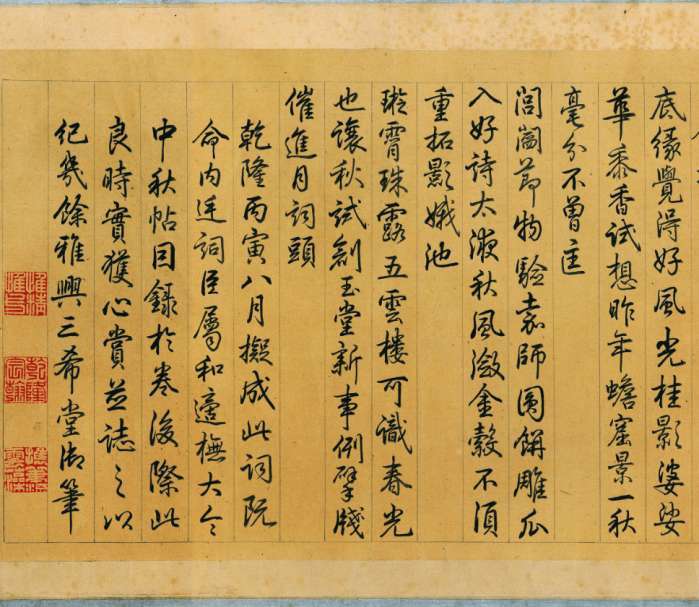 底緣覺得好風光桂影婆娑
華黍香試想昨年蟾窟景一秋
毫分不曾
節物驗師圓餅雕瓜
入好詩太液秋風瀲金縠不須
重拓影娥池
璇霄珠露五雲樓可識春光
也讓秋試創玉堂新事例擘牋
催進月詞頭
乾隆丙寅八月擬成此詞既
命内廷詞臣屬和適橅大令
中秋帖因錄於卷後際此
良時實獲心賞並誌之以
紀幾餘雅興三希堂御筆
乾隆宸翰